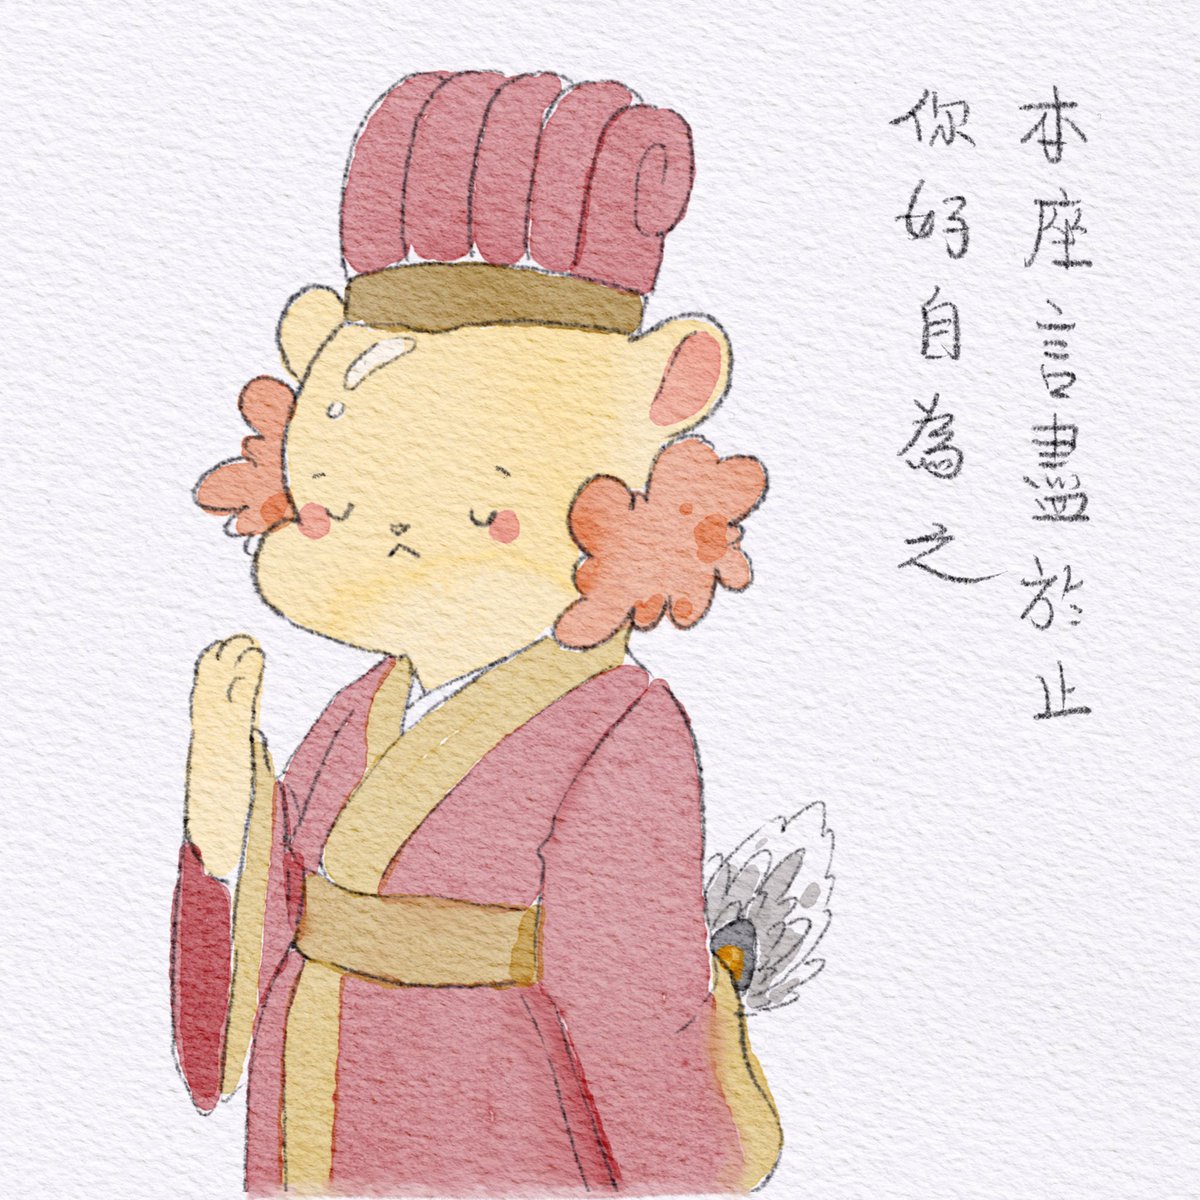 本座言盡於止
你好自為之